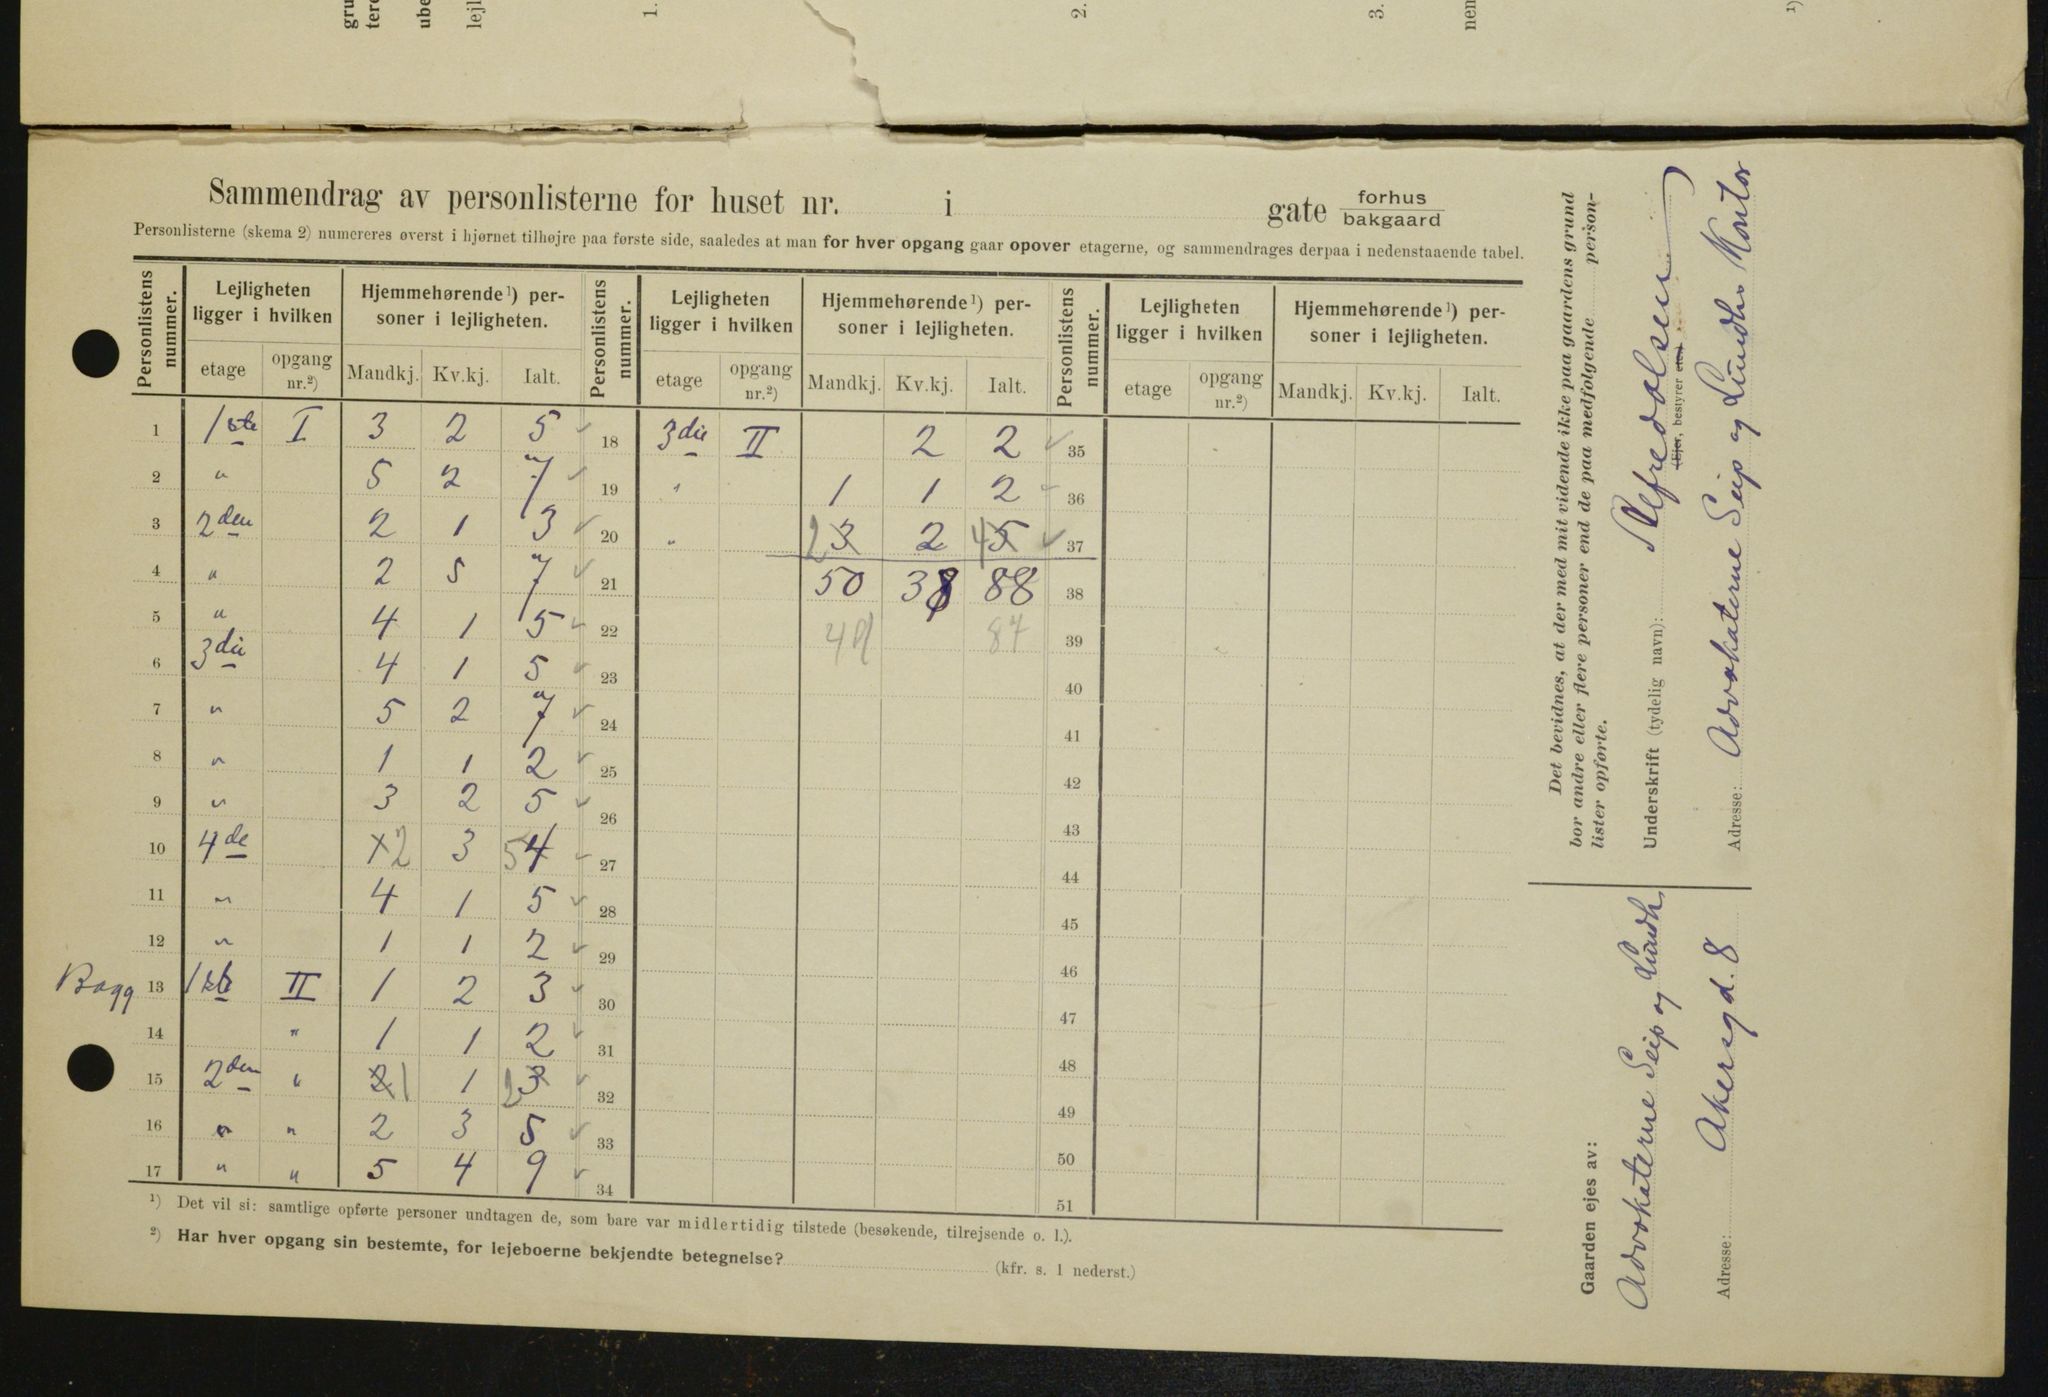 gru
tere
ube
lejl
1.
2.
3.
nem
1)
Sammendrag av personlisterne for huset nr. i gate forhus bakgaard
Personlisterne (skema 2) numereres øverst i hjørnet tilhøjre paa første side, saaledes at man for hver opgang gaar opover etagerne, og sammendrages derpaa i nedenstaaende tabel.
Personlistens nummer. Lejligheten ligger i hvilken Hjemmehørende¹) personer i lejligheten. Personlistens nummer. Lejligheten ligger i hvilken Hjemmehørende¹) personer i lejligheten. Personlistens nummer. Lejligheten ligger i hvilken Hjemmehørende¹) personer i lejligheten.
etage opgang nr.²) Mandkj. Kv.kj. Ialt. etage opgang nr.²) Mandkj. Kv.kj. Ialt. etage opgang nr.²) Mandkj. Kv.kj. Ialt.
1 1ste I 3 2 5 ✓ 18 3die II 2 2 ✓ 35
2 " 5 2 7 ✓ 19 " 1 1 2 ✓ 36
3 2den 2 1 3 ✓ 20 " 2 3 2 4 5 ✓ 37
4 " 2 5 7 ✓ 21 50 38 88 38
5 " 4 1 5 ✓ 22 49 87 39
6 3die 4 1 5 23 40
7 " 5 2 7 ✓ 24 41
8 " 1 1 2 ✓ 25 42
9 " 3 2 5 ✓ 26 43
10 4de 1 2 3 5 4 ✓ 27 44
11 " 4 1 5 ✓ 28 45
12 " 1 1 2 ✓ 29 46
Bagg 13 1ste II 1 2 3 ✓ 30 47
14 " 1 1 2 ✓ 31 48
15 2den " 2 1 1 2 3 ✓ 32 49
16 " " 2 3 5 ✓ 33 50
17 " " 5 4 9 ✓ 34 51
¹) Det vil si: samtlige opførte personer undtagen de, som bare var midlertidig tilstede (besøkende, tilrejsende o. l.).
²) Har hver opgang sin bestemte, for lejeboerne bekjendte betegnelse? (kfr. s. 1 nederst.)
Det bevidnes, at der med mit vidende ikke paa gaardens grund
bor andre eller flere personer end de paa medfølgende person-
lister opførte.
Underskrift (tydelig navn): Alfred Olsen
(Ejer, bestyrer etc.)
Adresse: Advokaterne Seip og Lundhs Kontor
Gaarden ejes av:
Advokaterne Seip og Lundh
Adresse: Akersgd. 8